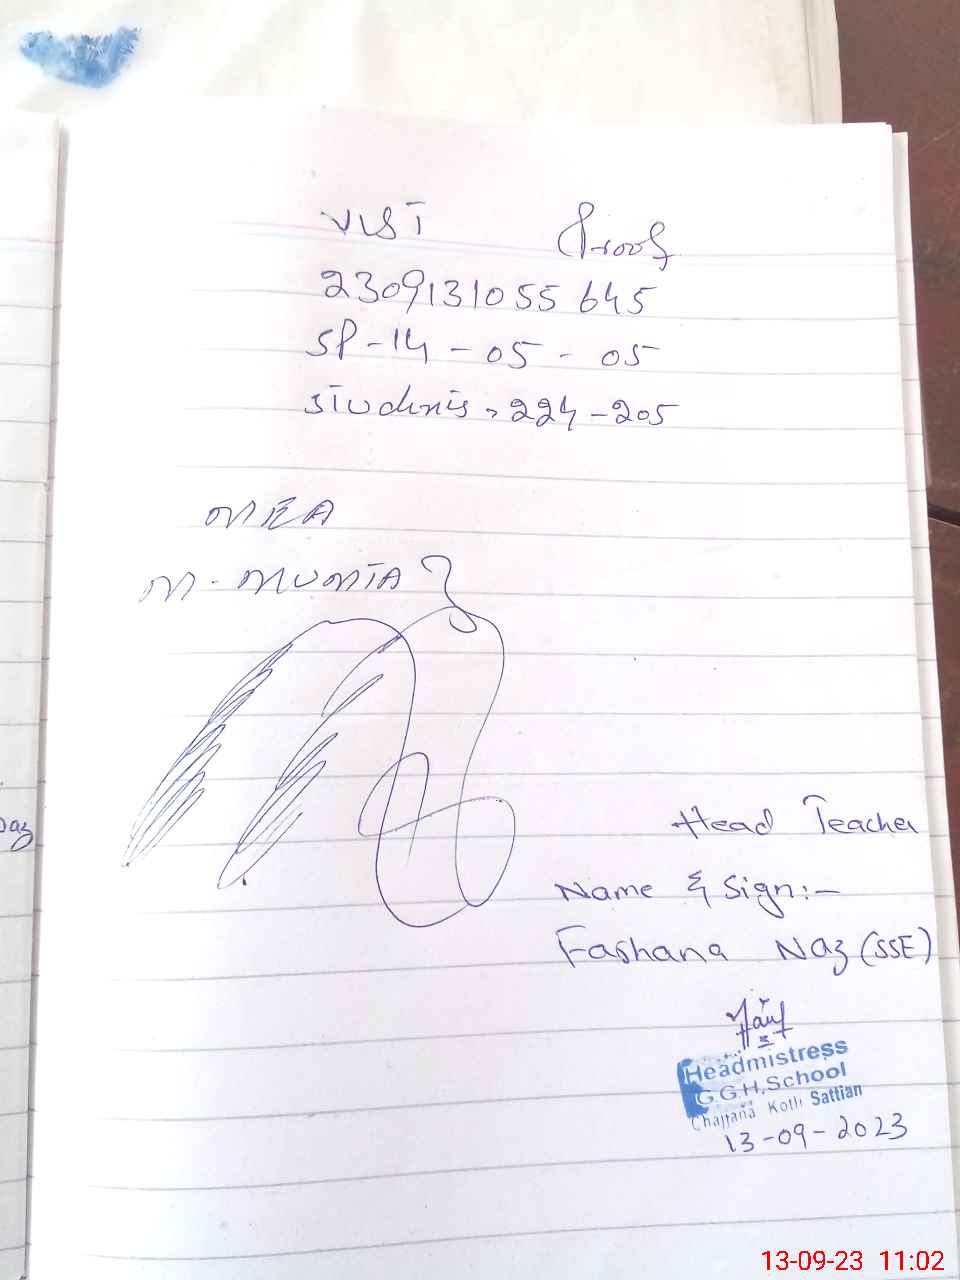 VIST Proof
2309131055645
SP-14-05-05
students, 224-205
MEA
M. MUMTAZ
Head Teacher
Name & Sign:-
Farhana Naz (SSE)
Naz
Headmistress
G.G.H.School
Chajjana Kotli Sattian
13-09-2023
13-09-23 11:02